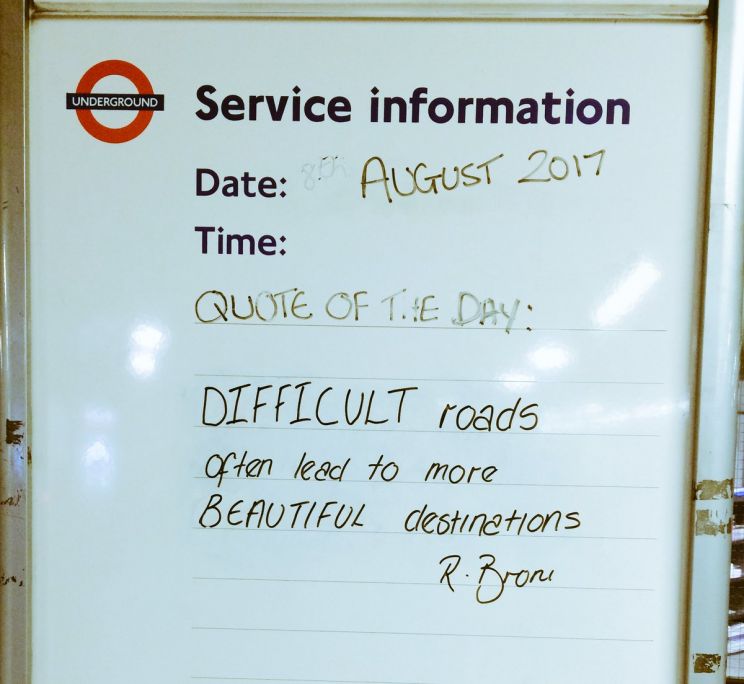 UNDERGROUND
Service information
Date: 8th AUGUST 2017
Time:
QUOTE OF THE DAY:
DIFFICULT roads
often lead to more
BEAUTIFUL destinations
R.